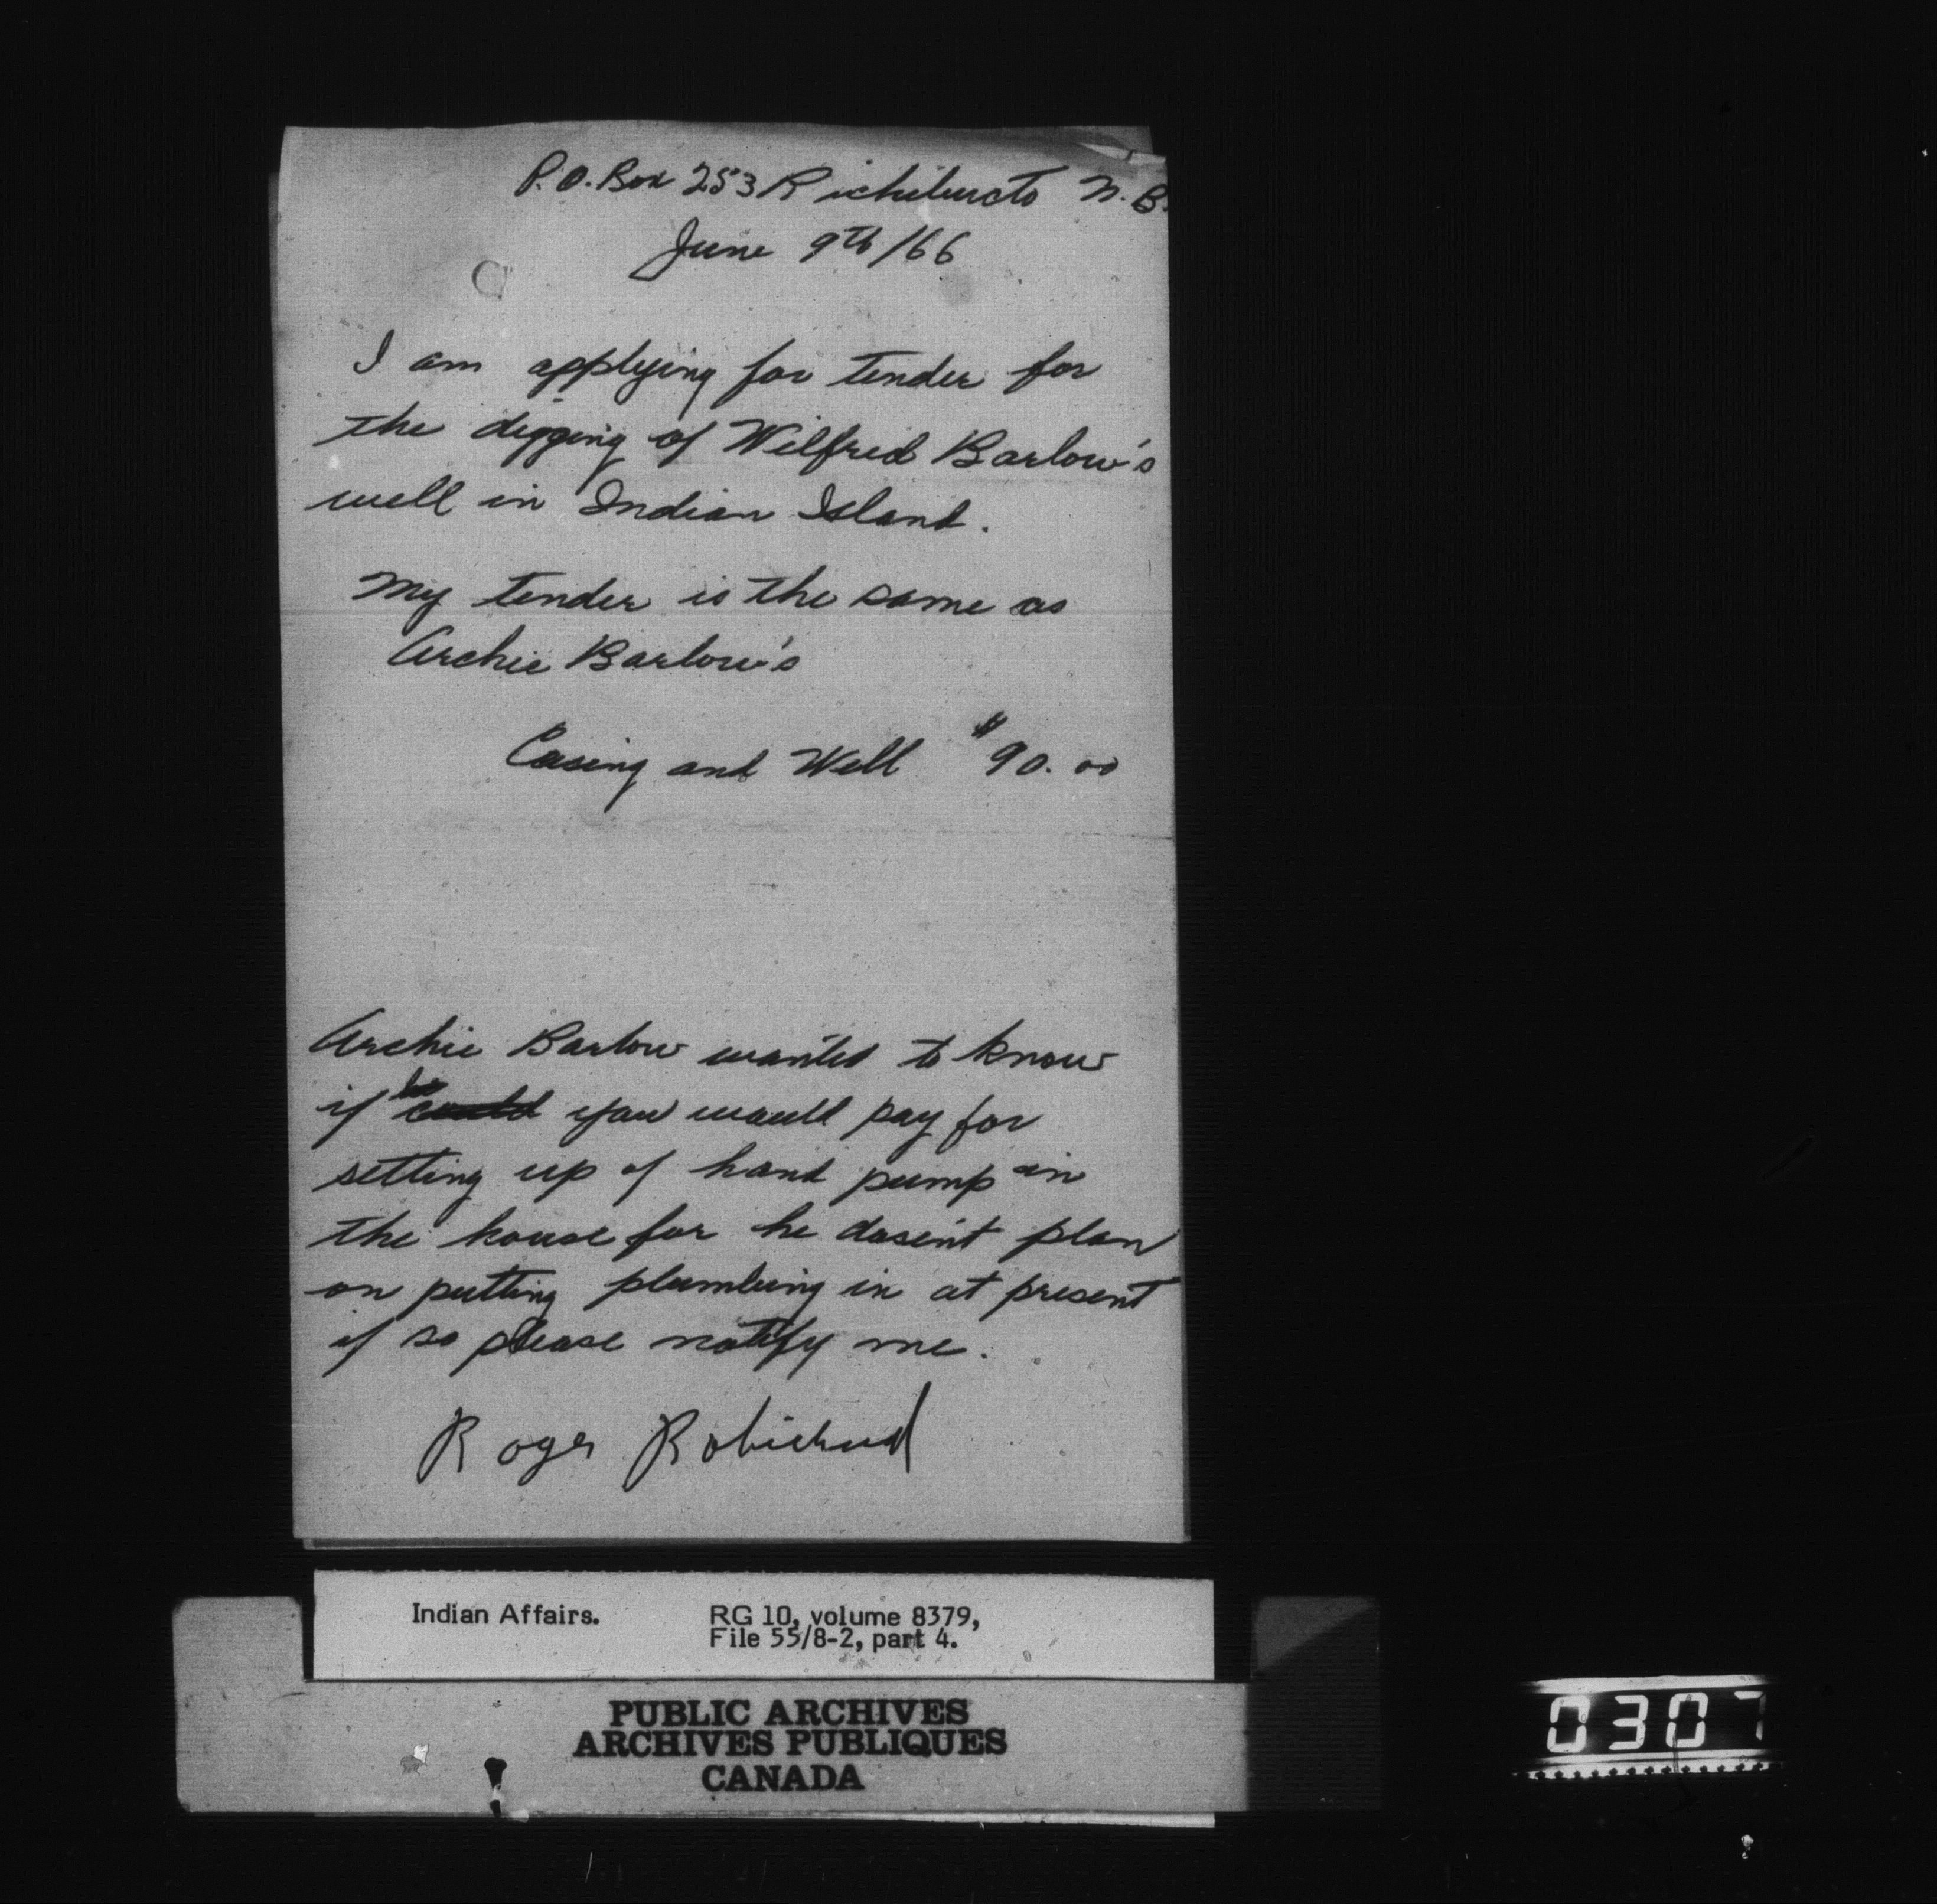 P.O. Box 253 Richibucto N.B.
June 9th/66
I am applying for tender for
the digging of Wilfred Barlow's
well in Indian Island.
My tender is the same as
Archie Barlow's
Casing and Well $90.00
Archie Barlow wanted to know
if you would pay for
setting up of hand pump in
the house for he dosen't plan
on putting plumbing in at present
if so please notify me.
Roger Robichaud
Indian Affairs. RG 10, volume 8379,
File 55/8-2, part 4.
PUBLIC ARCHIVES
ARCHIVES PUBLIQUES
CANADA
0307